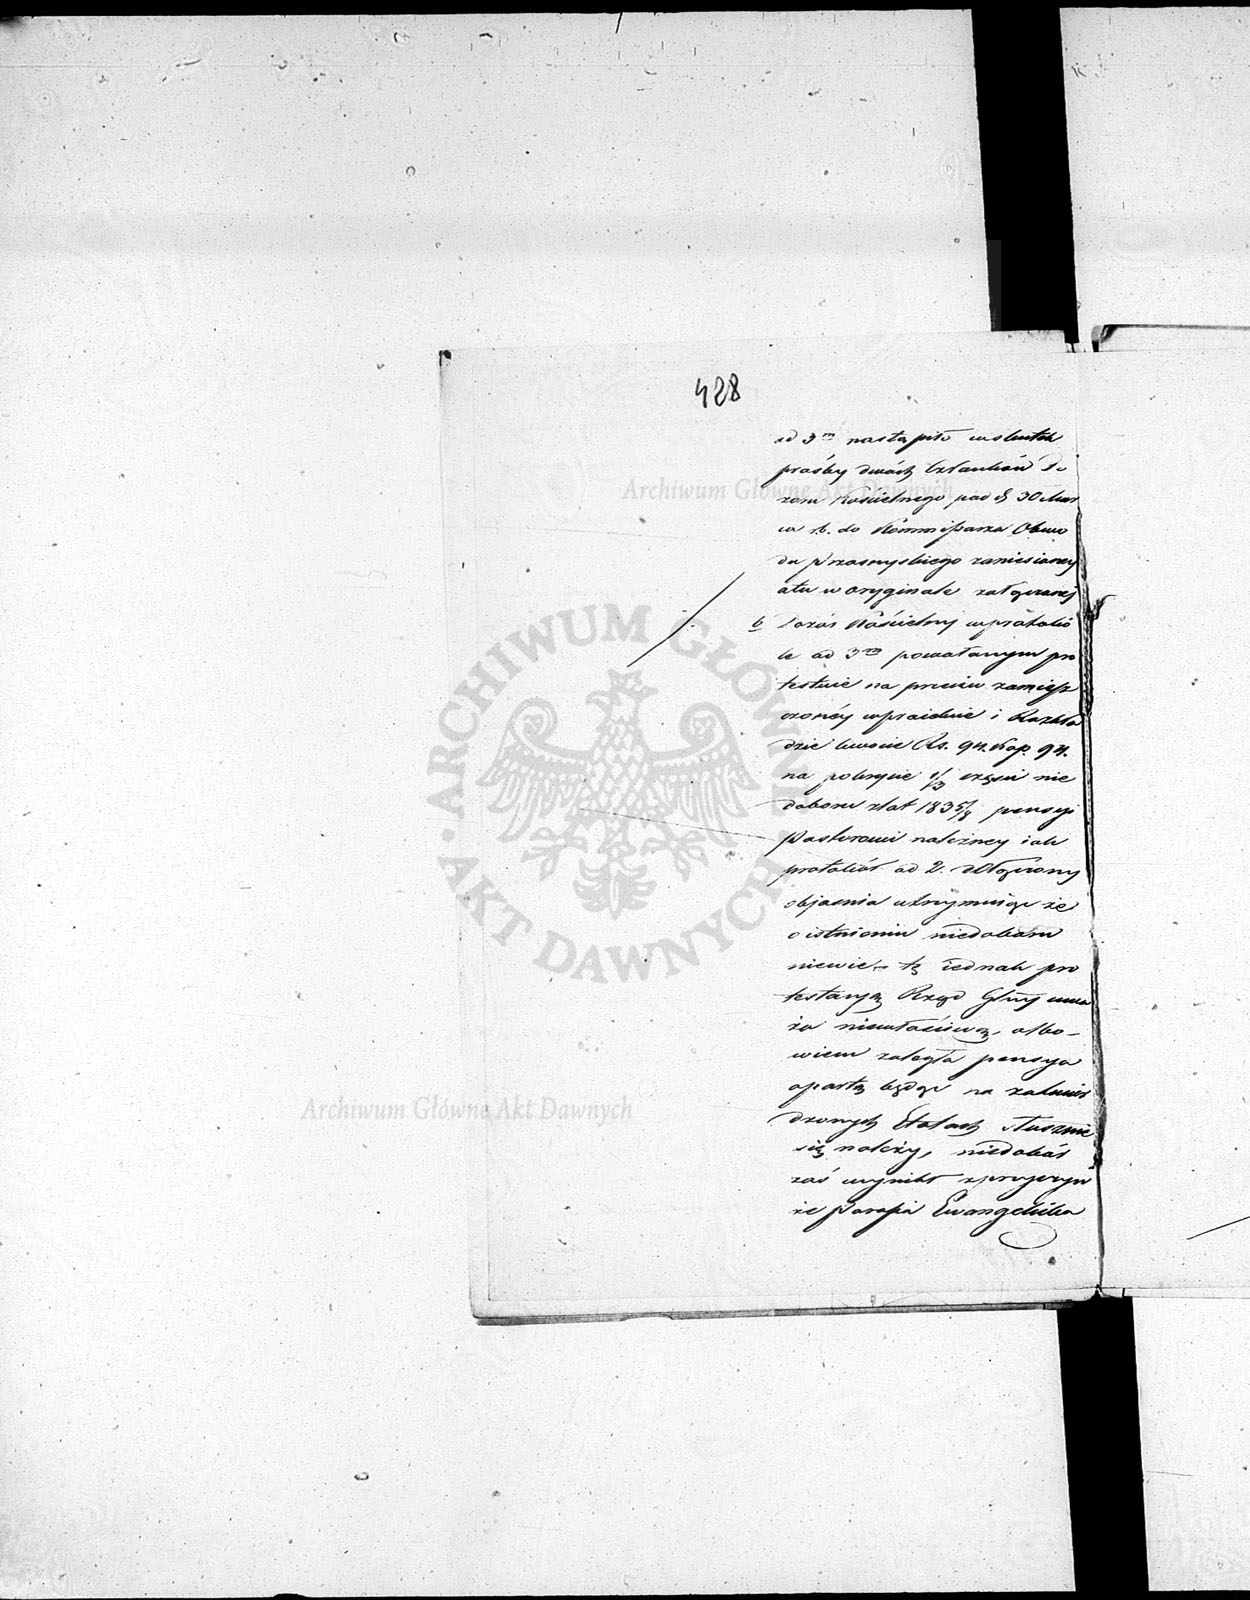 428
ad 3m nastąpiło wskutek
prośby dwóch Członków Do
zoru Kościelnego pod d 30 Mar
ca r.b. do Kommissarza Obwo
du Przasnyskiego zaniesioney
atu w oryginale załączonej
b Dozór Kościelny w protokó
le ad 3m powołanym pro
testuie na przeciw zamiesz
czonéy w prziedmie i Rozkła
dzie kwocie Rs. 94. Kop. 94.
na pokrycie 1/3 części nie
doboru z lat 1835/8 pensyi
Pastorowi należney iak
protokół ad 2. załączony
objaśnia utrzymuiąc że
o istnieniu niedoboru
niewie, tę iednak pro
testacyą Rząd Gbny uwa
ża niewłaściwą, albo-
wiem zaległa pensya
opartą będąc na zatwier
dzonych Etatach słusznie
się należy, niedobór
zaś wynikł z przyczyn
że Parafia Ewangelicka
Archiwum Główne Akt Dawnych
ARCHIWUM GŁÓWNE AKT DAWNYCH
Archiwum Główne Akt Dawnych